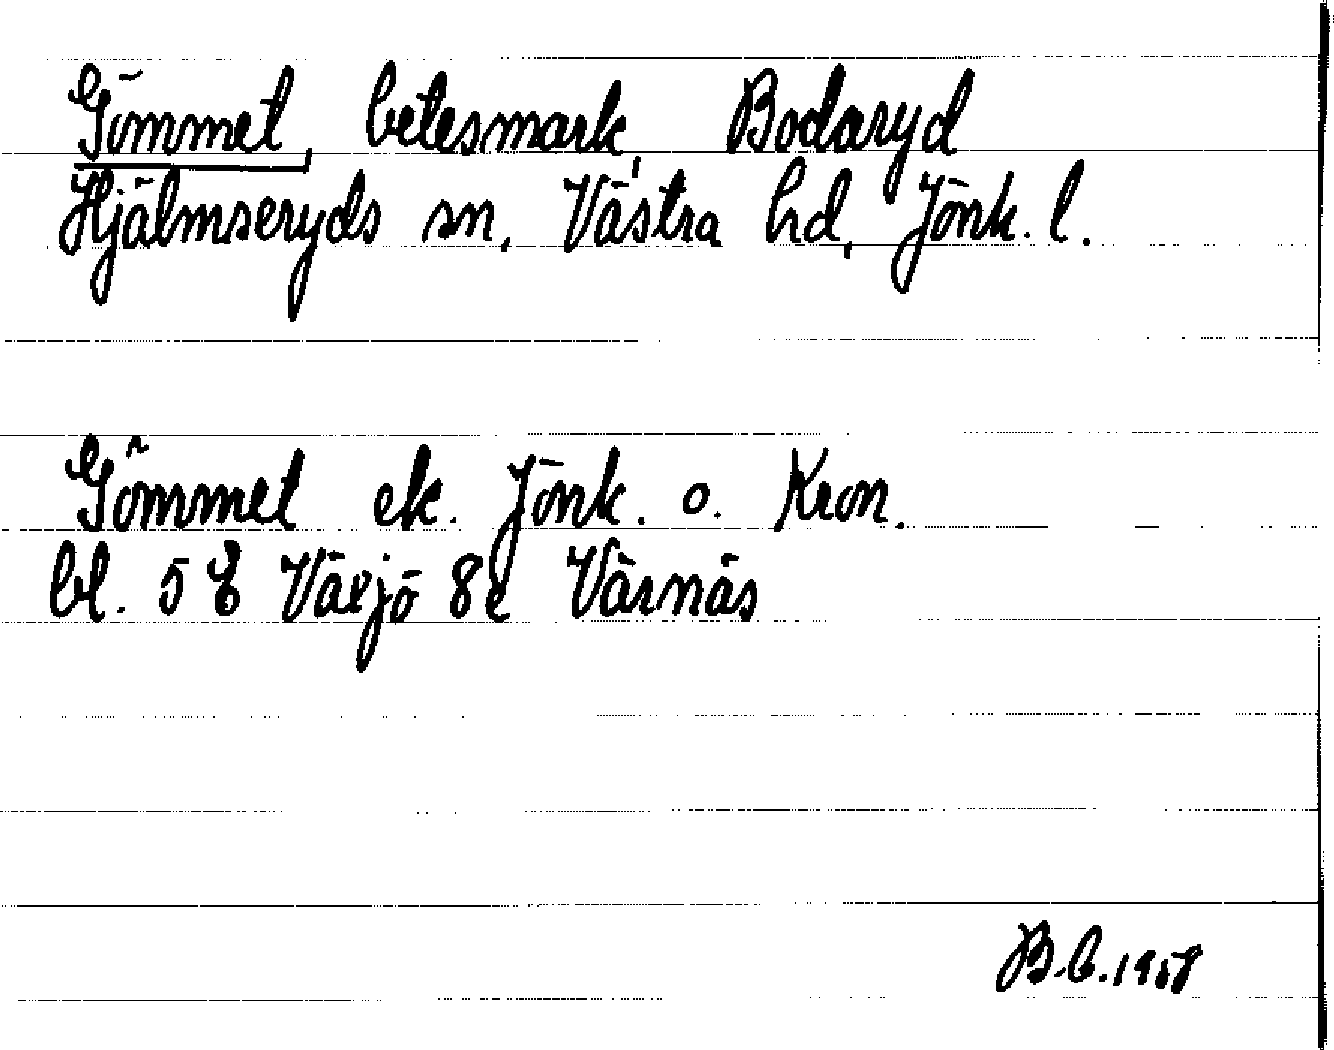 Gömmet, betesmark, Bodaryd
Hjälmseryds sn, Västra hd, Jönk. l.
Gömmet ek. Jönk. o. Kron.
bl. 5 E Växjö 8e Värnäs